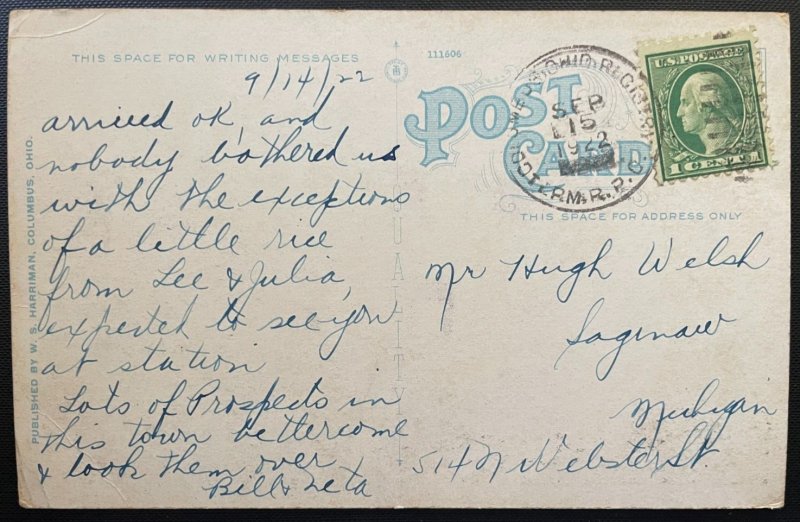 THIS SPACE FOR WRITING MESSAGES
9/14/22
arrived ok, and
nobody bothered us
with the exceptions
of a little rice
from Lee & Julia,
expected to see you
at station
Lots of Prospects in
this town better come
& look them over
Bill & Leta
PUBLISHED BY W. S. HARRIMAN, COLUMBUS, OHIO.
111606
POST CARD
QUALITY
SEP
15
1922
R.P.O.
U.S. POSTAGE
1 CENT 1
THIS SPACE FOR ADDRESS ONLY
Mr Hugh Welsh
Saginaw
Michigan
514 N Webster St